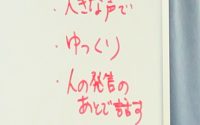 ・大きな声で
・ゆっくり
・人の発言の
あとで話す